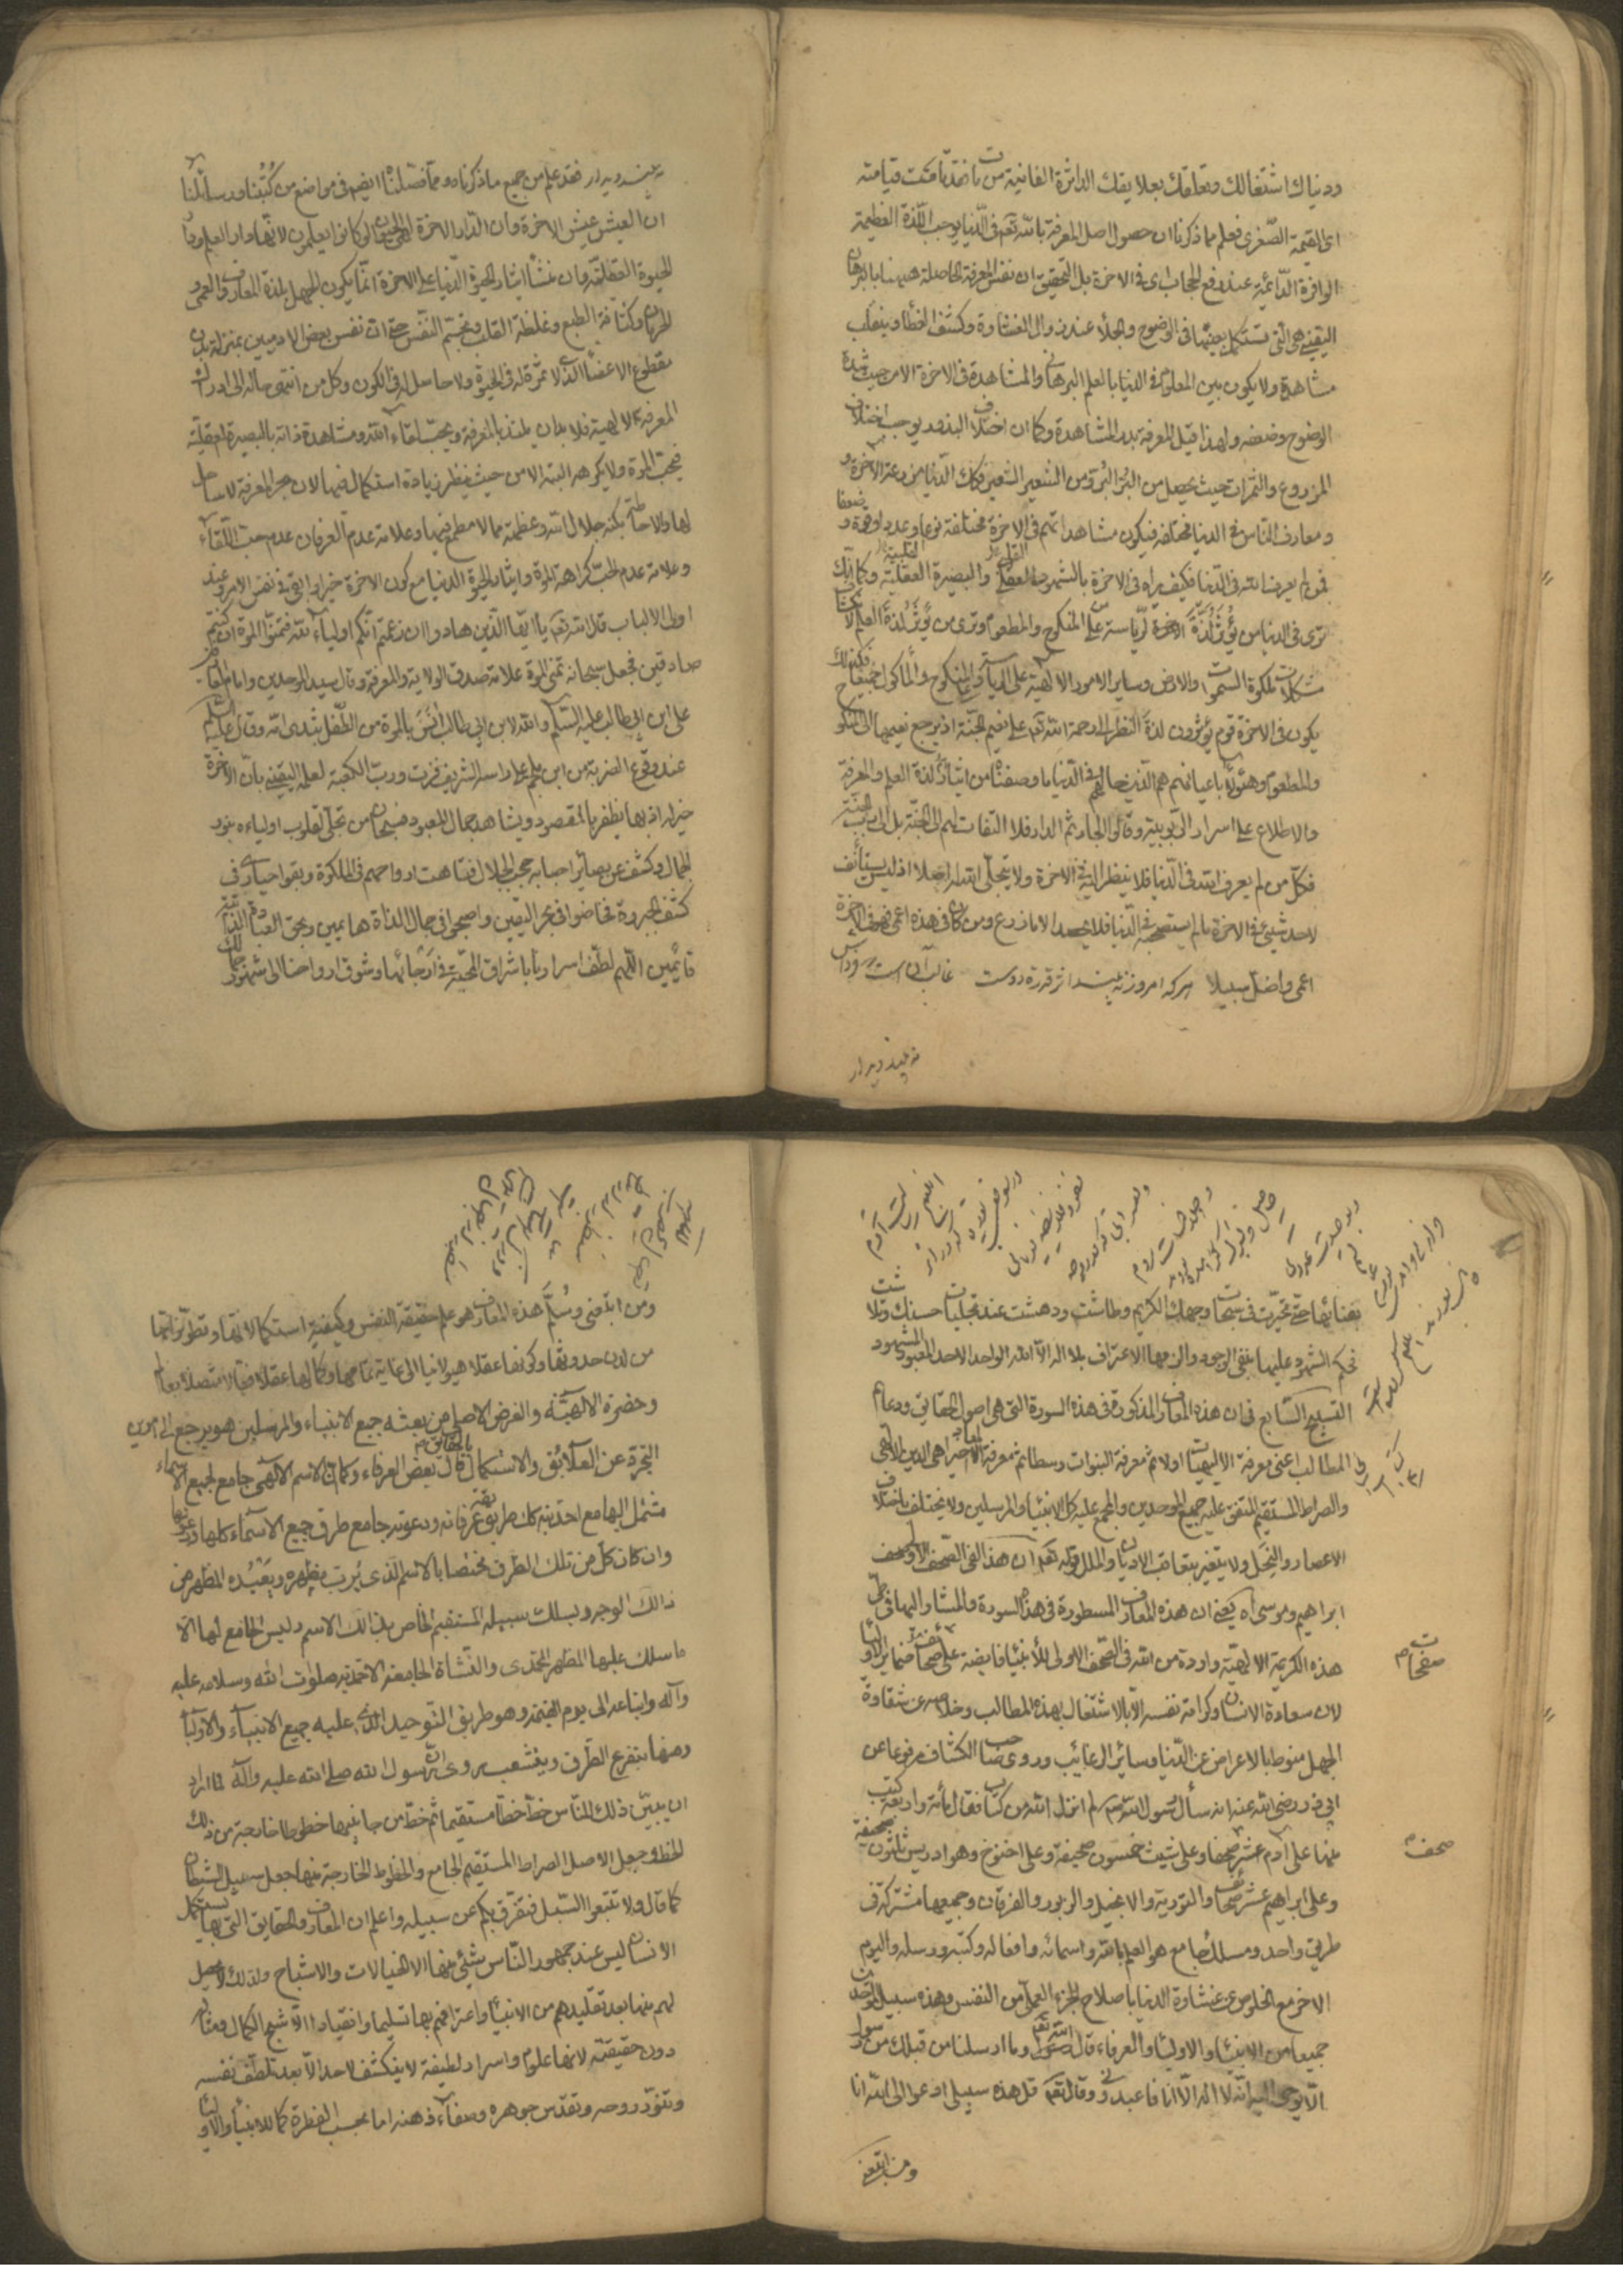 ودنياك اشتغالك وتعلقك بعلايقك الداثرة الفانية من مات فقد قامت قيامته
اى القيمة الصغرى فعلم مما ذكرنا ان حصول اصل المعرفة بالله تعم فى الدنيا يوجب اللذة العظيمة
الوافرة الدائمة عند رفع الحجاب اى فى الاخرة بل التحقيق ان نفس المعرفة الحاصلة هيهنا بالبرهان
اليقينى هى التى تستكمل بعينها فى الوضوح والجلاء عند زوال الغشاوة وكشف الغطاء وينقلب
مشاهدة ولا يكون بين المعلوم فى الدنيا بالعلم البرهانى والمشاهدة فى الاخرة الا من حيث شدة
الوضوح وضعفه ولهذا قيل المعرفة بذر المشاهدة وكما ان اختلاف البذور يوجب اختلاف
المزروع والثمرات حيث يحصل من البر البر ومن الشعير الشعير فكك الدنيا مزرعة الاخرة و
ومعارف الناس فى الدنيا مختلفة فيكون مشاهداتهم فى الاخرة مختلفة نوعا وعددا وقوة و ضعفا
فمن لم يعرف الله فى الدنيا فكيف يراه فى الاخرة بالشهود العقلى والبصيرة العقلية وكما انك
ترى فى الدنيا من يؤثر لذة الرياسة على المنكوح والمطعوم وترى من يؤثر لذة العلم لانكشاف
مشكلات ملكوة السموات والارض وساير الامور الالهية على الرياسة والمنكوح والمأكول جميعا فكذلك
يكون فى الاخرة قوم يؤثرون لذة النظر الى وجه الله تعم على نعيم الجنة اذ يرجع نعيمها الى المنكوح
والمطعوم وهؤلاء باعيانهم هم الذين حالهم فى الدنيا ما وصفنا من ايثار لذة العلم والمعرفة
والاطلاع على اسرار الربوبية وقالوا الجار ثم الدار فلا التفات لهم الى الجنة بل الى رب الجنة
فكل من لم يعرف الله فى الدنيا فلا ينظر اليه فى الاخرة ولا يتجلى الله له اصلا اذ ليس يستأنف
لاحد شيئ فى الاخرة ما لم استصحبه فى الدنيا فلا يحصد الا ما زرع ومن كان فى هذه اعمى فهو فى الاخرة
اعمى واضل سبيلا هركه امروز نه بيند اثر قدرت دوست غالب آنست كه فرداش
نه بيند ديدار
نه بيند ديدار فقد علم من جميع ما ذكرناه ومما فصلناه ايضا فى مواضع من كتبنا ورسائلنا
ان العيش عيش الاخرة وان الدار الاخرة لهى الحيوان لو كانوا يعلمون لانها دار العلم ودار
الحيوة العقلية وان منشأ ايثار الحيوة الدنيا على الاخرة انما يكون للجهل بلذة المعارف والعمى و
الحرمان وكثافة الطبع وغلظة القلب وتجسم النفس حتى ان نفس بعض الادميين بمنزلة بدن
مقطوع الاعضاء الذى لا ثمرة له فى الحيوة ولا حاصل له فى الكون وكل من انتهى حاله الى ادراك
المعرفة الالهية فلا بد ان يلتذ بالمعرفة ويحب لقاء الله ومشاهدة ذاته بالبصيرة العقلية
فيحب الموت ولا يكرهه البتة الا من حيث ينظر زيادة استكمال فيها لان بحر المعرفة لا ساحل
لها والاحاطة بكنه جلال الله وعظمته مما لا مطمع فيها وعلامة عدم العرفان عدم حب اللقاء
وعلامة عدم الحب كراهة الموت وايثار الحيوة الدنيا مع كون الاخرة خيرا وابقى فى نفس الامر وعند
اولى الالباب قال الله تعم يا ايها الذين هادوا ان زعمتم انكم اولياء لله فتمنوا الموة ان كنتم
صادقين فجعل سبحانه تمنى الموة علامة صدق الولاية والمعرفة وقال سيد الموحدين وامام العارفين
على ابن ابى طالب عليه السلم والله لابن ابى طالب انس بالموة من الطفل بثدى امه وقال عليه السلم
عند وقوع الضربة من ابن ملجم على راسه الشريف فزت ورب الكعبة لعلمه اليقينى بان الاخرة
خير له اذ بها يظفر بالمقصود ويشاهد جمال المعبود فسبحان من تجلى لقلوب اولياءه بنور
الجمال وكشف عن بصائر احبابه حجب الجلال فتاهت ارواحهم فى الملكوة وبقوا حيارى فى
كشف الجبروة فخاضوا فى بحر اليقين واصبحوا فى جمال الذاة هائمين وبحق العباد لله
قايمين اللهم لطف اسرارنا باشراق المحبة فى ارجائها وشوق ارواحنا الى شهود جمالك
بفنائها حتى تحيرت فى سبحات وجهك الكريم وطاشت ودهشت عند تجليات حسنك وتلاشت
فحكم الشهود عليها بنفى الوجود والزمها الاعتراف بلا اله الا الله الواحد الاحد المعبود المشهود
التسبيح السابع فى ان هذه المعارف المذكورة فى هذه السورة التى هى اصول الحقايق ودعائم
المطالب اعنى معرفة الالهيات اولا ثم معرفة النبوات وسطا ثم معرفة المعاد اخيرا هى الدين الالهى
والصراط المستقيم المتفق عليه جميع الموحدين والمجمع عليه كل الانبياء والمرسلين ولا يختلف باختلاف
الاعصار والنحل ولا يتغير بتعاقب الاديان والملل قوله تعم ان هذا لفى الصحف الاولى صحف
ابراهيم وموسى اه يعنى ان هذه المعارف المسطورة فى هذه السورة والمشار اليها فى طى
هذه الكريمة الالهية واردة من الله فى الصحف الاولى للانبياء فايضة على صفحات ضماير الاولياء
صفحات
لان سعادة الانسان وكرامة نفسه الا بالاشتغال بهذه المطالب وخلاصه عن شقاوة
الجهل منوط بالاعراض عن الدنيا وسائر الرغائب وروى صاحب الكشاف مرفوعا عن
ابى ذر رضى الله عنه انه سأل رسول الله صم كم انزل الله من كتاب فقال مأة واربعة كتب
منها على ادم عشر صحف وعلى شيث خمسون صحيفة وعلى اخنوخ وهو ادريس ثلثون صحيفة
صحف
وعلى ابراهيم عشر صحائف والتورية والانجيل والزبور والفرقان وجميعها مشتركة فى
طريق واحد ومسلك جامع هو العلم بالله واسمائه وافعاله وكتبه ورسله واليوم
الاخر مع الخلوص عن غشاوة الدنيا باصلاح الجزء العملى من النفس وهذه سبيل الموحدين
جميعا من الانبياء والاولياء والعرفاء قال الله تعم وما ارسلنا من قبلك من رسول
الا نوحى اليه انه لا اله الا انا فاعبدونى وقال تعم قل هذه سبيلى ادعوا الى الله انا
ومن اتبعنى
ومن اتبعنى وسلم هذه المعارف هو علم حقيقة النفس وكيفية استكمالاتها وتطوراتها
من لدن حدوثها وكونها عقلا هيولانيا الى غاية تمامها وكمالها عقلا فعالا متصلا بعالم
وحضرة الالهية والغرض الاصلى من بعثه جميع الانبياء والمرسلين هو يرجع الى امرين
التجرد عن العلائق والاستكمال بالحقايق قال بعض العرفاء وكما ان الاسم الالهى جامع لجميع الاسماء
مشتمل اليها مع احديته كك طريق عرفانه ودعوته جامع طرق جميع الاسماء كلها ودعوتها
وان كان كل من تلك الطرق مختصا بالاسم الذى يرب مظهره ويعبده المظهر من
ذالك الوجه ويسلك سبيله المستقيم الخاص بذالك الاسم وليس الجامع لها الا
ما سلك عليها المظهر المحمدى والنشاة الجامعة الاحمدية صلوات الله وسلامه عليه
وآله واتباعه الى يوم القيمة وهو طريق التوحيد الذى عليه جميع الانبياء والاولياء
ومنها يتفرع الطرق ويتشعب روى ان رسول الله صلى الله عليه وآله لما اراد
ان يبين ذلك للناس خط خطا مستقيما ثم خط من جانبيها خطوطا خارجة من ذلك
الخط وجعل الاصل الصراط المستقيم الجامع والخطوط الخارجة منها جعل سبيل الشيطان
كما قال ولا تتبعوا السبل فتفرق بكم عن سبيله واعلم ان المعارف والحقايق التى بها يستكمل
الانسان ليس عند جمهور الناس شيئ منها الا الخيالات والاشباح ولذلك لا يحصل
لهم منها بعد تقليدهم من الانبياء واعترافهم بها تسليما وانقيادا الا شبح الكمال ومثاله
دون حقيقته لانها علوم واسرار لطيفة لا ينكشف لاحد الا بعد تلطف نفسه
وتنور روحه وتقدس جوهره وصفاء ذهنه اما بحسب الفطرة كما للانبياء والاولياء